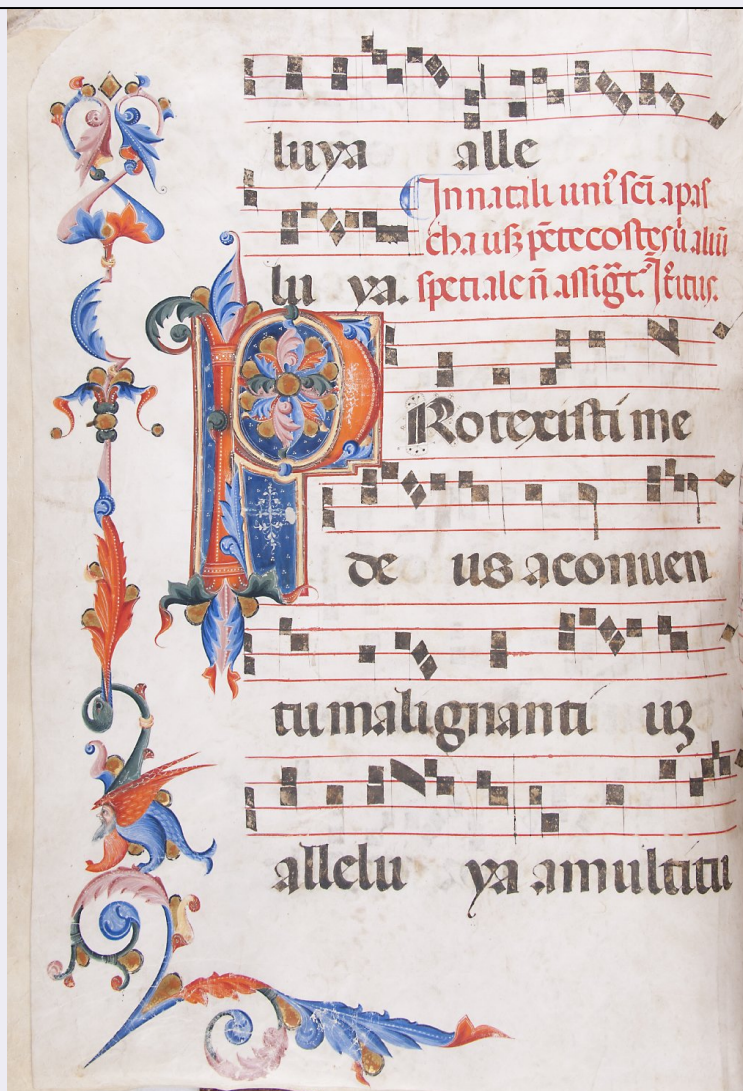 luya alle
In natali uniꝰ sc̄i a pas
cha usqꝫ pētecostes ſi aliū
speciale nō assiḡt. Itꝛoitus.
lu ya.
PRotexisti me
de us a conuen
tu malignanti uꝫ
allelu ya a multitu